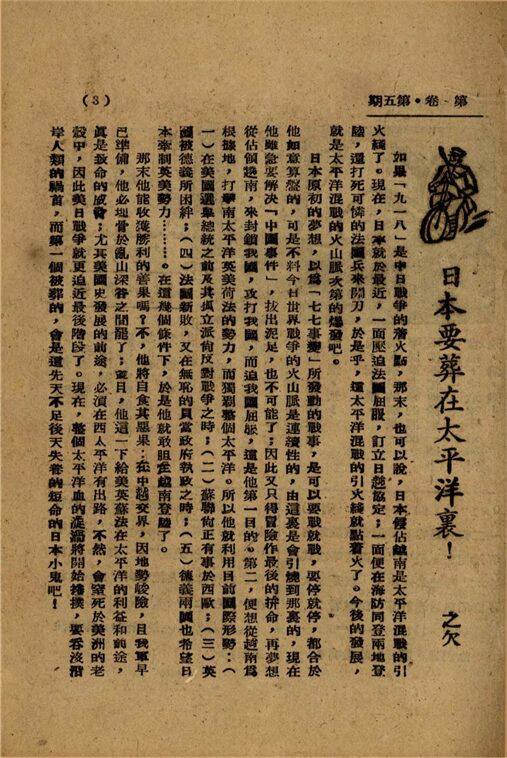 第一卷•第五期
(3)
日本要葬在太平洋裏！
之欠
如果「九一八」是中日戰爭的着火點，那末，也可以說，日本侵佔越南是太平洋混戰的引
火綫了。現在，日本就於最近，一面壓迫法國屈服，訂立日越協定；一面便在海防同登兩地登
陸，還打死可憐的法國兵來開刀，於是乎，這太平洋混戰的引火綫就點着火了。今後的發展，
就是太平洋混戰的火山脈次第的爆發吧。
日本原初的夢想，以爲「七七事變」所發動的戰事，是可以要戰就戰，要停就停，都合於
他如意算盤的，可是不料今日世界戰爭的火山脈是連續性的，由這裏是會引燒到那裏的，現在
他雖急要解决「中國事件」，拔出泥足，也不可能了；因此又只得冒險作最後的拚命，再夢想
從佔領越南，來封鎖我國，攻打我國，而迫我國屈服，這是他第一目的。第二，便想從越南爲
根據地，打擊南太平洋英美荷法的勢力，而獨霸整個太平洋。所以他就利用目前國際形勢：（
一）在美國選舉總統之前及其孤立派尙反對戰爭之時；（二）蘇聯尙正有事於西歐；（三）英
國被德義所困絆；（四）法國新敗，又在無恥的貝當政府執政之時；（五）德義兩國也希望日
本牽制英美勢力………。在這幾個條件下，於是他就敢胆在越南登陸了。
那末他能收獲勝利的善果嗎？不，他將自食其惡果：在中越交界，因地勢峻險，且我軍早
已準備，他必埋骨於亂山深谷之間罷了；並且，他這一下給美英蘇法在太平洋的利益和前途，
眞是致命的威脅；尤其美國史發展的前途，必須在西太平洋有出路，不然，會窒死於美洲的老
殼中，因此美日戰爭就更迫近最後階段了。現在，整個太平洋血的漩渦將開始捲撲，要吞沒沿
岸人類的禍首，而第一個被葬的，會是這先天不足後天失養的短命的日本小鬼吧！